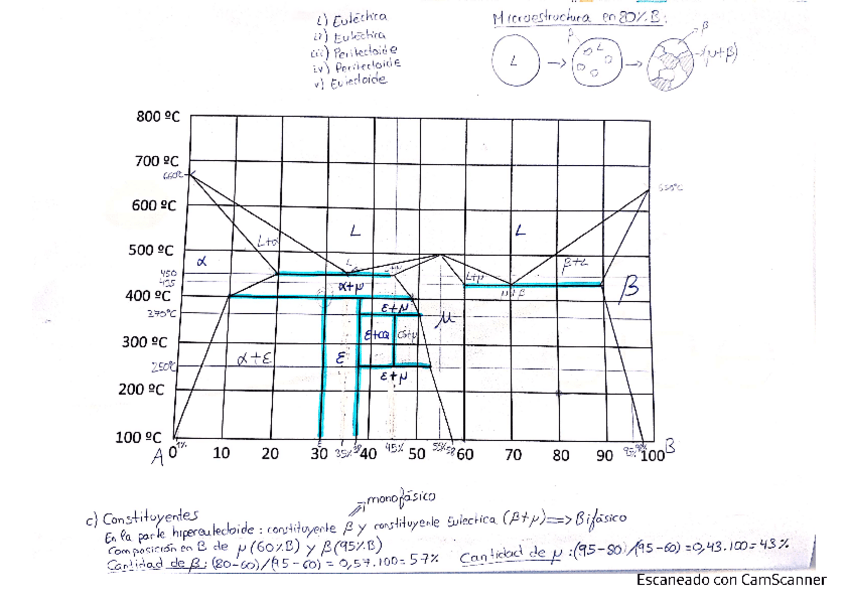 i) Eutéctica
ii) Eutéctica
iii) Peritectoide
iv) Peritectoide
v) Eutectoide
Microestructura en 80% B:
L
β L
β
(μ+β)
800 ºC
700 ºC
600 ºC
500 ºC
400 ºC
300 ºC
200 ºC
100 ºC
450
370ºC
250ºC
L
L
L+α
α
β+L
L+μ
β
α+μ
ε+μ
μ
α+ε
ε
ε+μ
A 0 10 20 30 35% 40 45% 50 60 70 80 90 100 B
monofásico
c) Constituyentes
En la parte hipereutectoide: constituyente β y constituyente Eutectica (β+μ) => Bifásico
Composición en B de μ (60% B) y β (95% B)
Cantidad de β: (80-60)/(95-60) = 0,57.100 = 57% Cantidad de μ: (95-80)/(95-60) = 0,43.100 = 43%
Escaneado con CamScanner